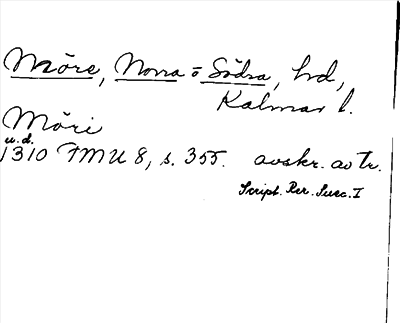 Möre, Norra o Södra, hd,
Kalmar l.
Möri
u.d.
1310 FMU 8, s. 355. avskr. av tr.
Script. Rer. Suec. I